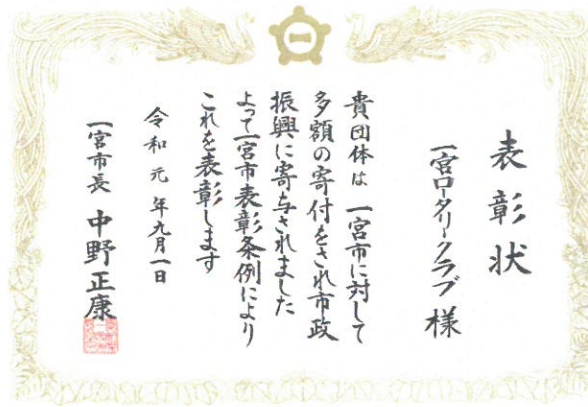 表彰状
一宮ロータリークラブ 様
貴団体は 一宮市に対して
多額の寄付をされ市政
振興に寄与されました
よって一宮市表彰条例により
これを表彰します
令和元年九月一日
一宮市長 中野正康